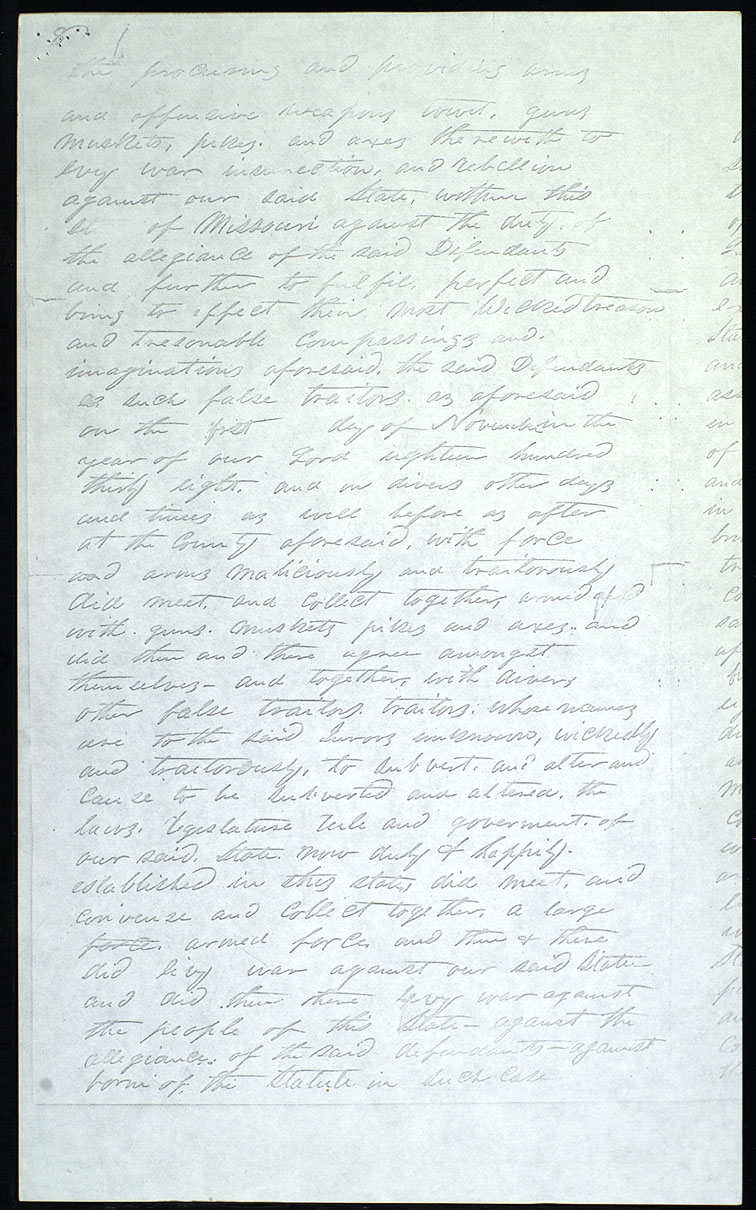 the procuring and providing arms
and offensive weapons towit, guns
muskets, pikes. and axes therewith to
levy war insurrection, and rebellion
against our said State, within this
of Missouri against the duty. of
the allegiance of the said Defendants
and further to fulfil, perfect and
bring to effect their most Wicked treason
and treasonable Compassings and.
imaginations aforesaid. the said Defendants
as such false traitors. as aforesaid
on the first day of November in the
year of our Lord eighteen hundred
thirty eight. and on divers other days
and times as well before as after
at the County aforesaid, with force
and arms maliciously and traitorously
did meet, and collect together, armed
with. guns. muskets pikes and axes.. and
did then and there agree amongst
themselves - and together, with divers
other false traitors. traitors. whose names
are to the said Jurors unknown, wickedly
and traitorously, to subvert. and alter and
Cause to be Subverted and altered. the
laws. legislature rule and goverment. of
our said. State. now duly & happily.
established in this state, did meet, and
convense and Collect together, a large
force. armed force. and then & there
did levy war against our said State -
and did then there levy war against
the people of this State - against the
allegiance. of the said defendants - against
form of. the Statute in such Case